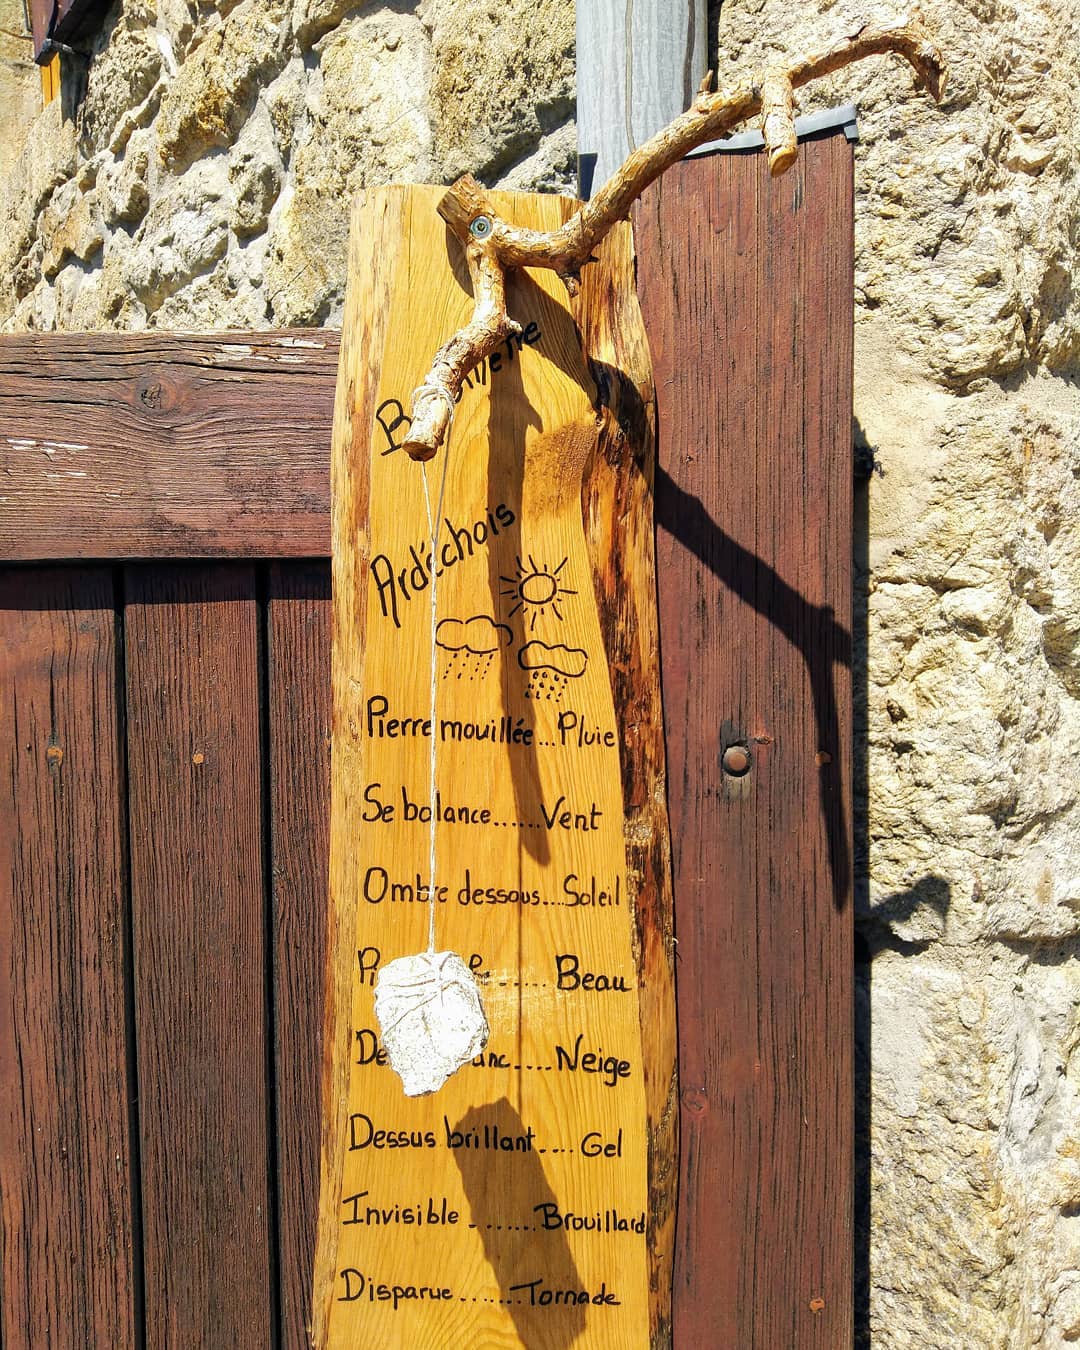 Ardéchois
Pierre mouillée...Pluie
Se balance......Vent
Ombre dessous....Soleil
..... Beau
....Neige
Dessus brillant.... Gel
Invisible ........Brouillard
Disparue ........Tornade